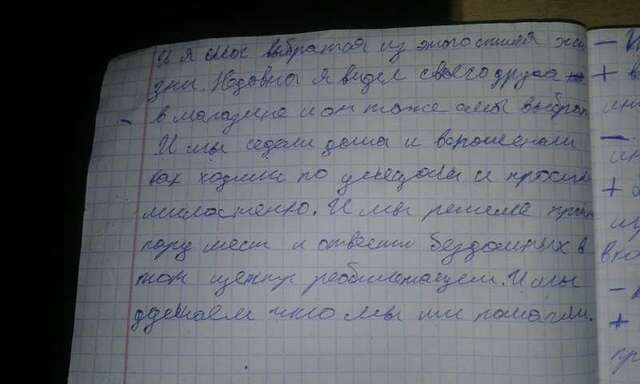 И я смог выбратся из этого стиля жи
зни. Недовно я видел своего друга
в магазине и он тоже смог выбрат
И мы седели дома и вспоменали
как ходили по улецам и просили
милостеню. И мы решили пройти
пару мест и отвести бездомных в
тот центр реобилетацеи. И мы
думаем что мы им помагли.
- 
+ в
ин
-
ин
+
+
пр